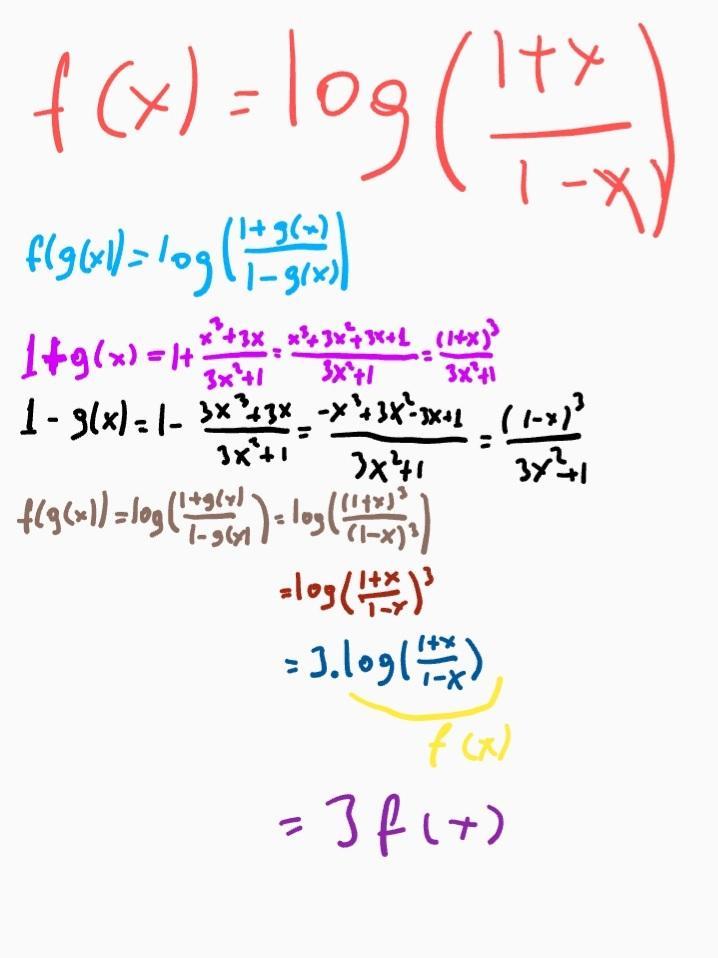 f(x) = log((1+x)/(1-x))
f(g(x)) = log((1+g(x))/(1-g(x)))
1+g(x) = 1+ (x³+3x)/(3x²+1) = (x³+3x²+3x+1)/(3x²+1) = (1+x)³/(3x²+1)
1 - g(x) = 1- (3x³+3x)/(3x²+1) = (-x³+3x²-3x+1)/(3x²+1) = (1-x)³/(3x²+1)
f(g(x)) = log((1+g(x))/(1-g(x))) = log((1+x)³/(1-x)³)
= log((1+x)/(1-x))³
= 3.log((1+x)/(1-x))
f(x)
= 3f(x)